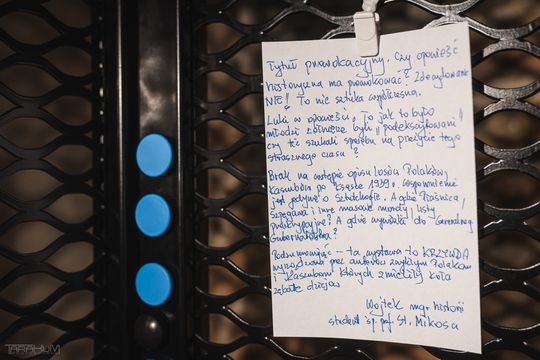 Tytuł prowokacyjny. Czy opowieść
historyczna ma prowokować? Zdecydowanie
NIE! To nie sztuka współczesna.
Luki w opowieści. To jak to było
młodzi żołnierze byli „podekscytowani"
czy też szukali sposobu na przeżycie tego
strasznego czasu?
Brak na wstępie opisu losów Polaków,
Kaszubów po klęsce 1939r. Wspomnienie
jest jedynie o Stutthofie. A gdzie Piaśnica,
Szpęgawa i inne masowe mordy, listy
proskrypcyjne? A gdzie wywózki do Generalnego
Gubernatorstwa?
Podsumowując – ta wystawa to KRZYWDA
wyrządzona przez autorów zwykłym Polakom
i Kaszubom których zmieliły koła
zębate dziejów
Wojtek mgr historii
student śp. prof. St. Mikosa
TARAHUM